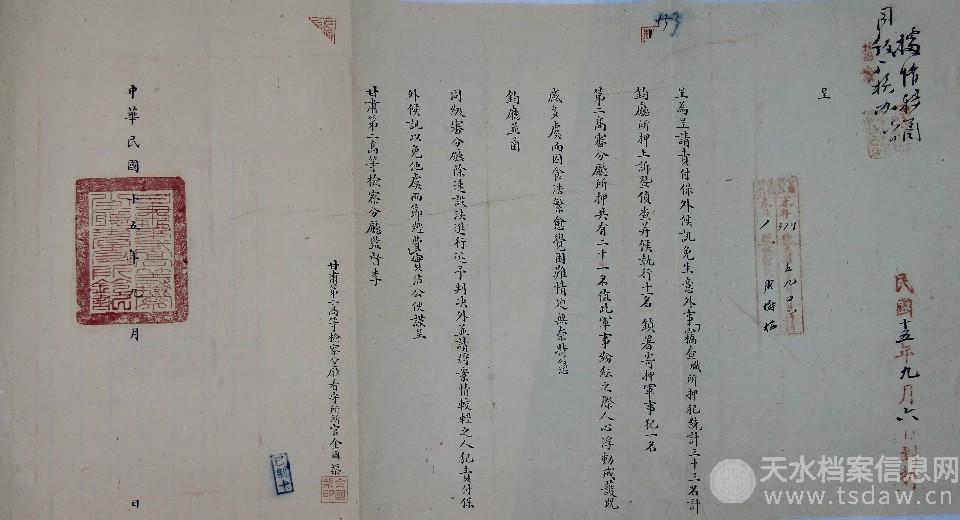 據情轉商
民國十五年九月六日到
呈
呈為呈請責付保外候訊免生意外事竊查職所押犯統計三十三名計
鈞廳所押上訴暨偵查并候執行十一名鎮署寄押軍事犯一名
第二高審分廳所押共有二十一名值此軍事紛紜之際人心浮動戒護既
感多虞而囚食浩繁愈覺困難情迫無奈懇
鈞廳並函
同級審分廳除速設法進行從予判決外並請將案情較輕之人犯責付保
外候訊以免他虞而節經費實沾公便謹呈
甘肅第二高等檢察分廳監督李
甘肅第二高等檢察分廳看守所所官金國榮
中華民國十五年九月日
天水档案信息网
www.tsdaw.cn